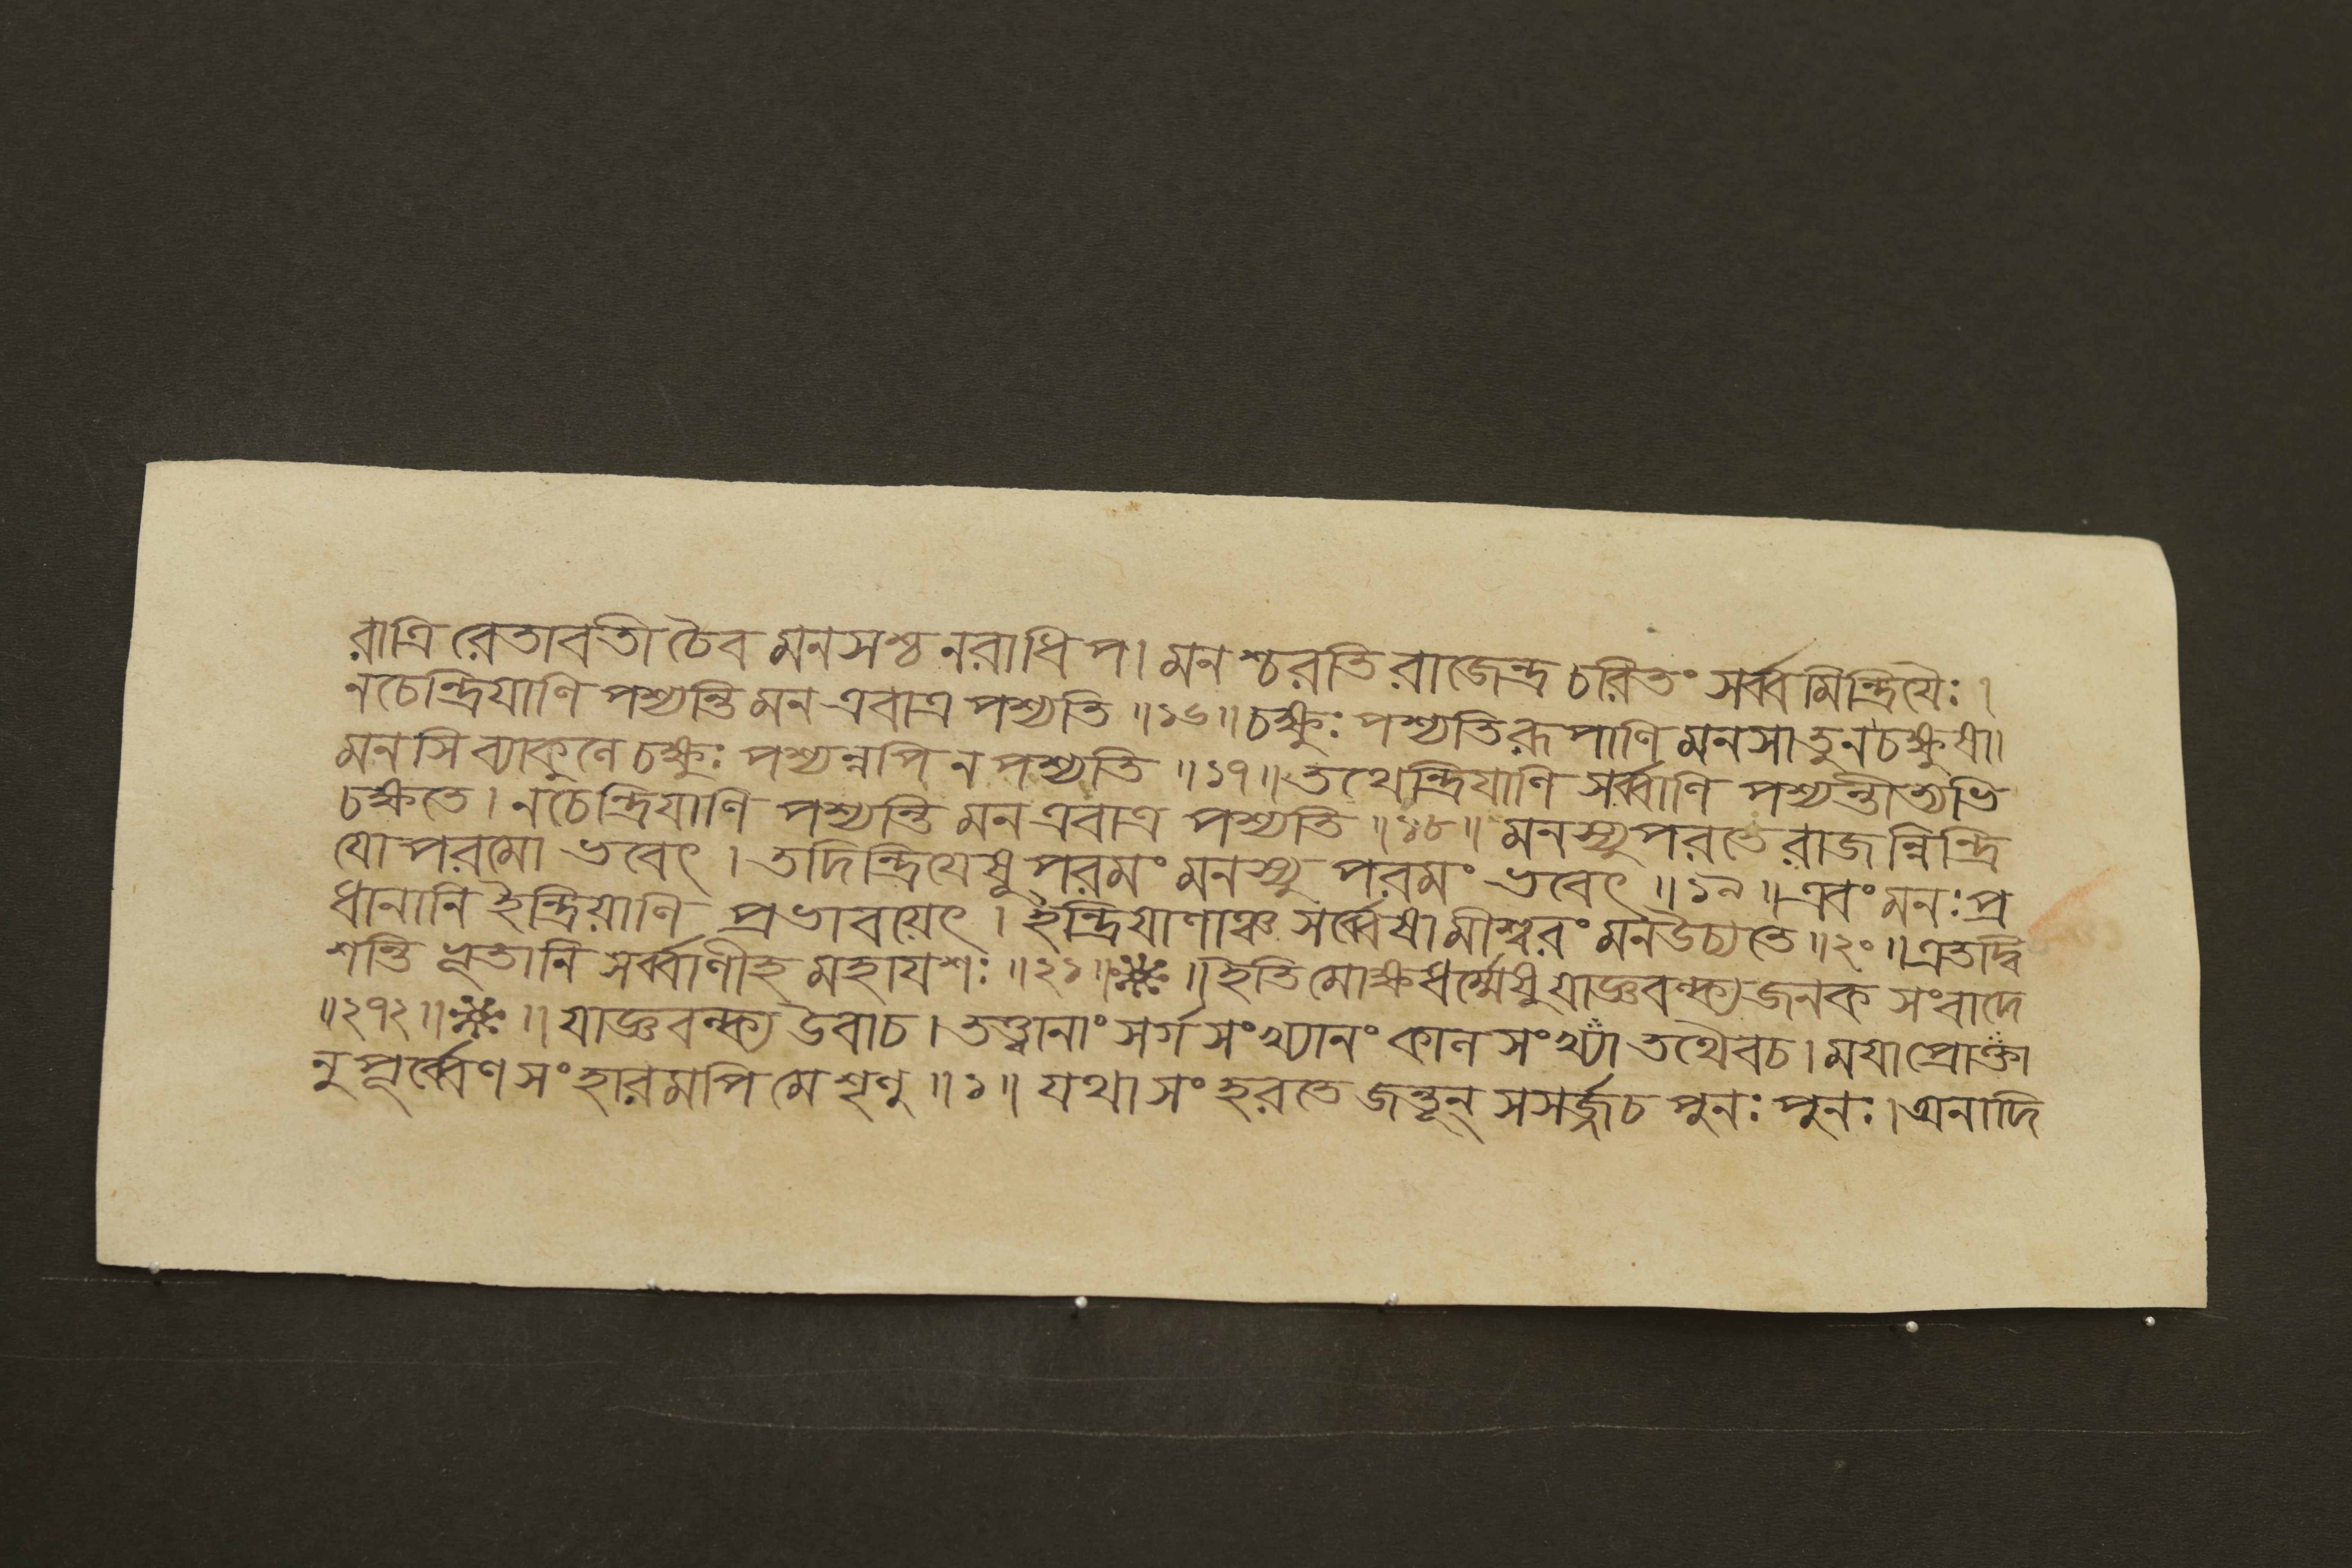 রাত্রি রেতাবতী চৈব মনসশ্চ নরাধিপ। মনশ্চরতি রাজেন্দ্র চরিতং সর্ব্বমিন্দ্রিয়ৈঃ।
নচেন্দ্রিয়াণি পশ্যন্তি মন এবাত্র পশ্যতি ॥১৬॥ চক্ষুঃ পশ্যতি রূপাণি মনসা তু ন চক্ষুষা।
মনসি ব্যাকুলে চক্ষুঃ পশ্যন্নপি ন পশ্যতি ॥১৭॥ তথেন্দ্রিয়াণি সর্ব্বাণি পশ্যন্তীত্যভি
চক্ষতে। নচেন্দ্রিয়াণি পশ্যন্তি মন এবাত্র পশ্যতি ॥১৮॥ মনস্যুপরতে রাজন্নিন্দ্রি
যোপরমো ভবেৎ। তদিন্দ্রিয়েষুপরমং মনস্যুপরমং ভবেৎ ॥১৯॥ এবং মনঃ প্র
ধানানি ইন্দ্রিয়াণি প্রভাবয়েৎ। ইন্দ্রিয়াণাঞ্চ সর্ব্বেষামীশ্বরং মন উচ্যতে ॥২০॥ এতদ্বি
শন্তি ভূতানি সর্ব্বাণীহ মহাযশঃ ॥২১॥ ❈ ॥ ইতি মোক্ষধর্ম্মেষু যাজ্ঞবল্ক্যজনক সংবাদে
॥২৭২॥ ❈ ॥ যাজ্ঞবল্ক্য উবাচ। তত্ত্বানাং সর্গসংখ্যানং কাল সংখ্যা তথৈবচ। ময়া প্রোক্তা
নুপূর্ব্বেণ সংহারমপি মে শৃণু ॥১॥ যথা সংহরতে জন্তূন্ সসর্জ্জ চ পুনঃ পুনঃ। অনাদি